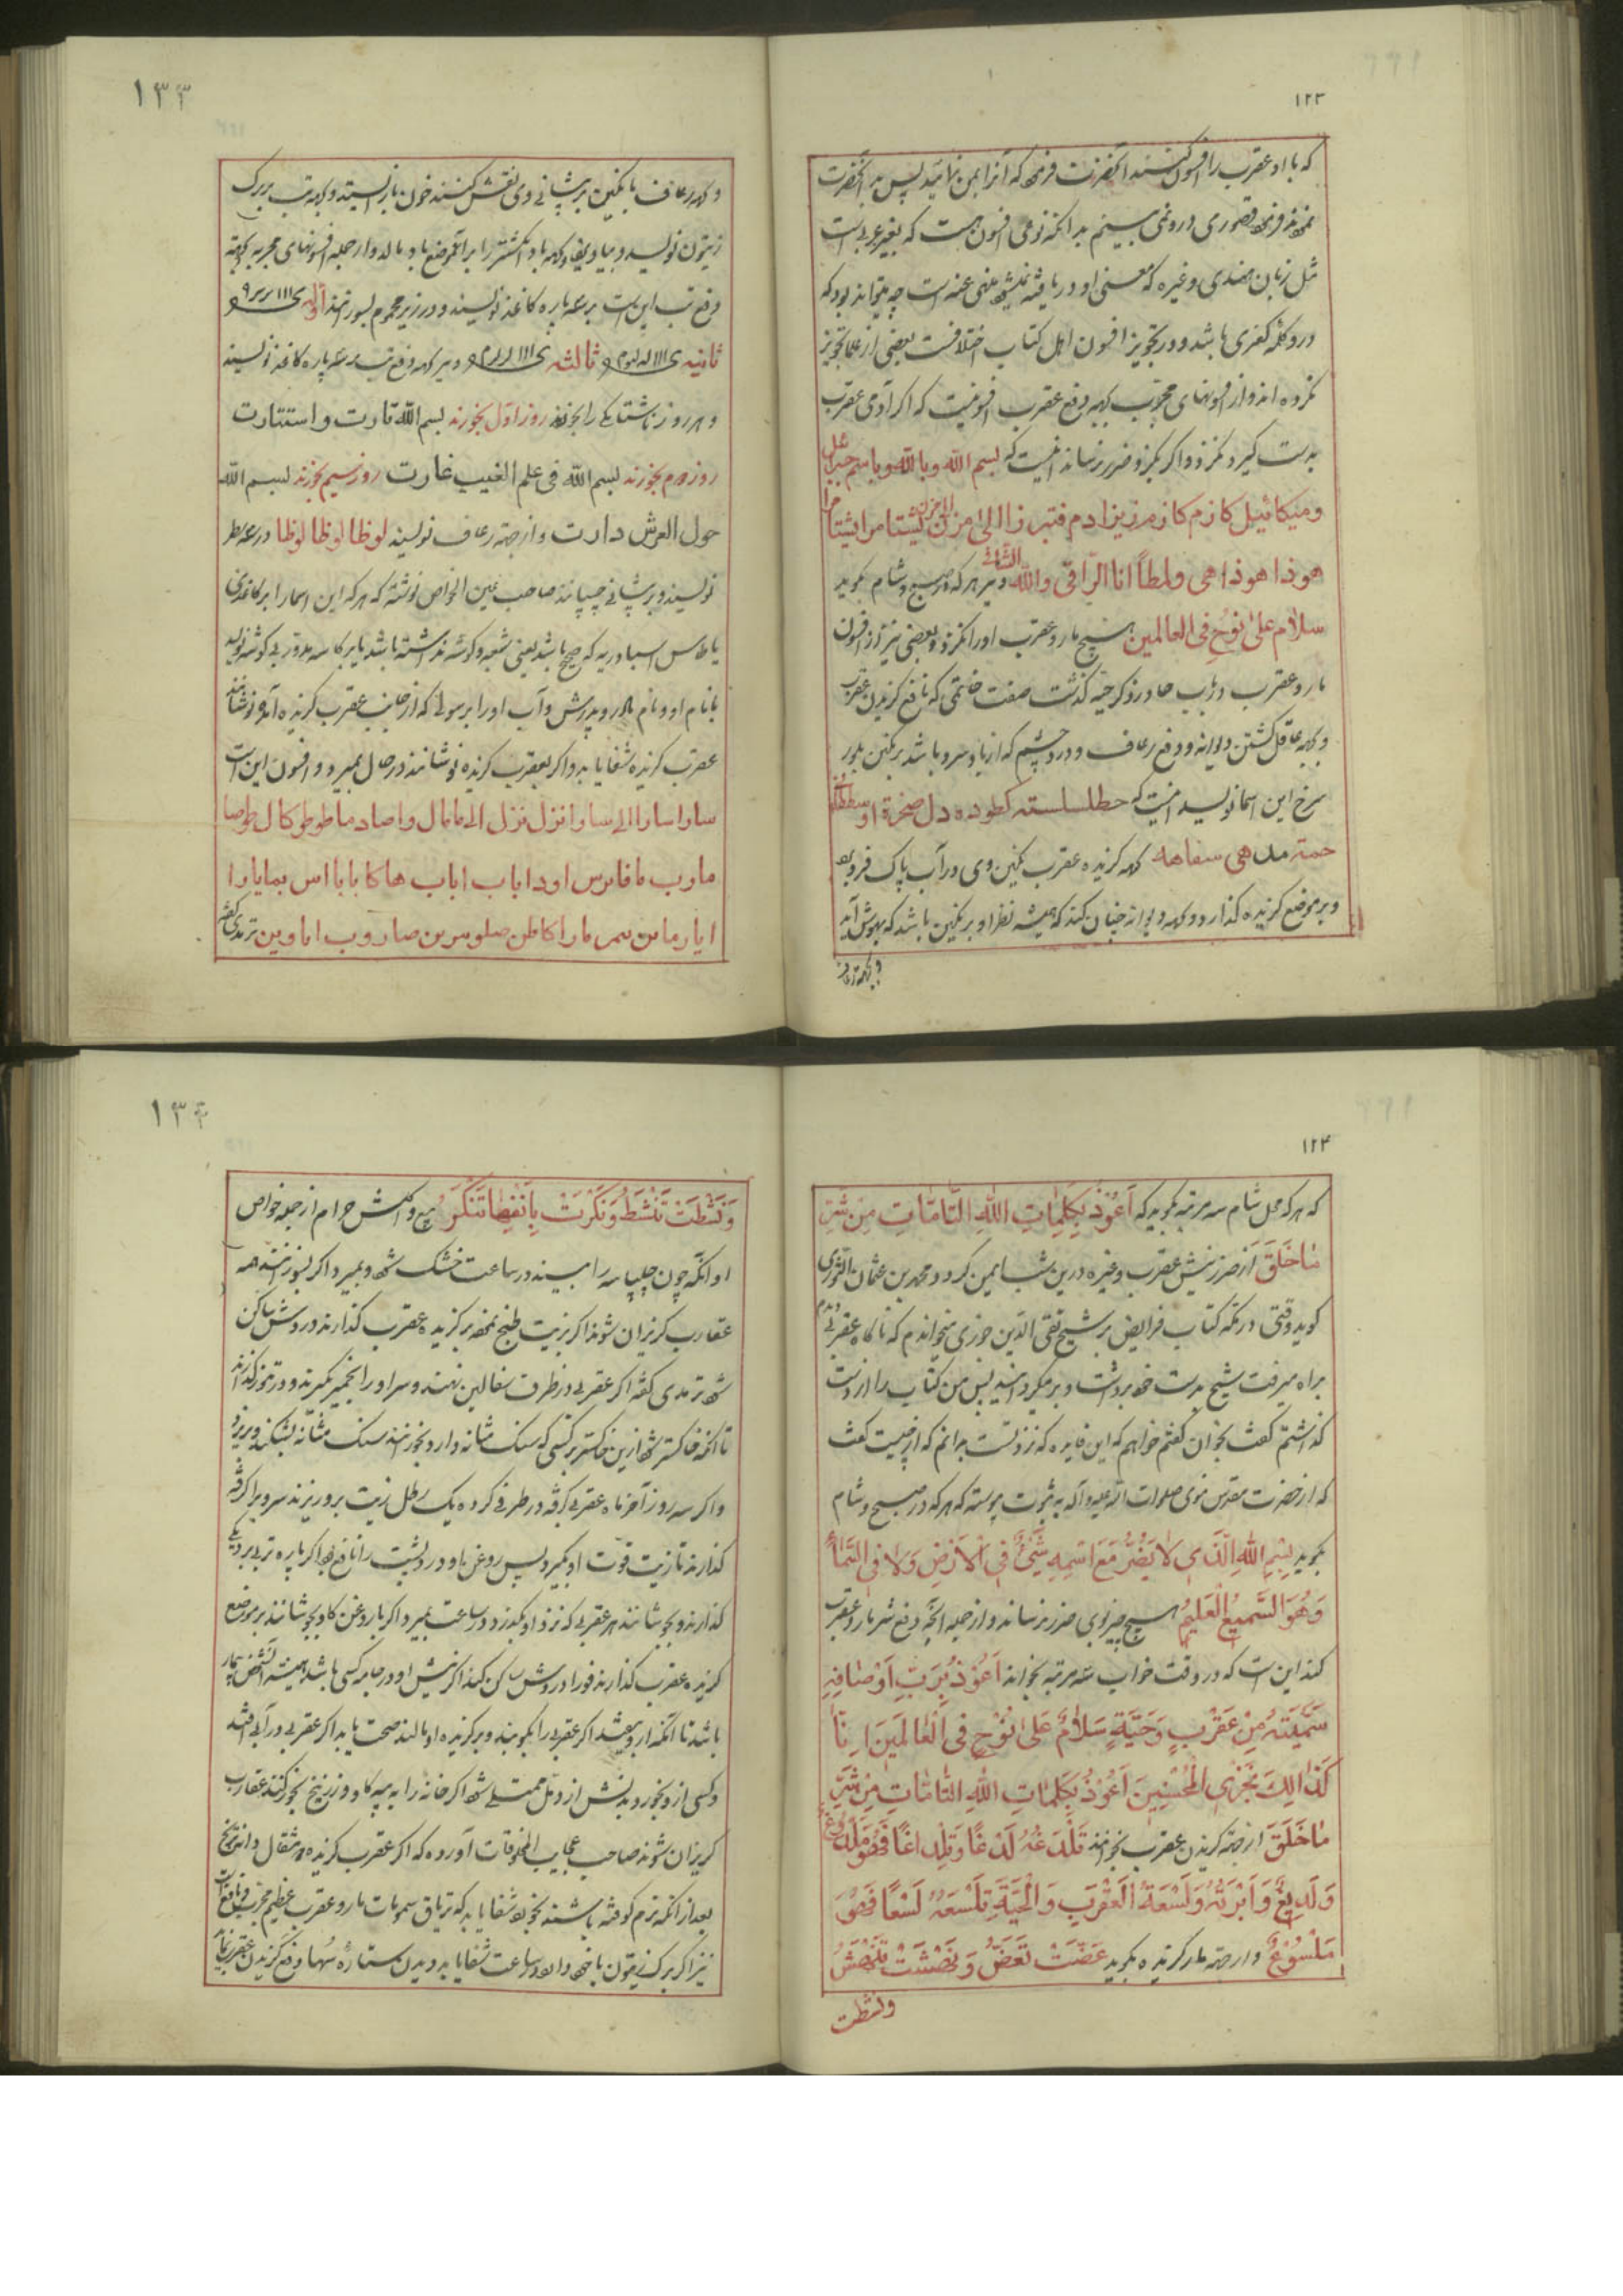 ۱۲۳
که با او عقرب را افسون کنند آنحضرت فرمود که آنرا بمن نمائید پس بر آنحضرت
نمودند فرمود قصوری درو نمی بینم بدانکه نوعی افسون هست که بغیر عربی است
مثل زبان هندی و غیره که معنی او دریافته نمیشود منهی عنه است چه میتواند بود که
درو کلمه کفری باشد و در تجویز افسون اهل کتاب اختلافست بعضی از علما تجویز
نکرده اند و از افسونهای مجرب بجهه دفع عقرب افسونیست که اگر آدمی عقرب
بدست گیرد نگزد و اگر بگزد ضرر نرساند اینست که بسم الله وبالله وباسم جبرائیل
ومیکائیل کازم کازم زیرادم فتبر زا الی مرن یشتامرا یشتامرا
هوذا هوذا هی ولمطاً انا الراقی والله الشافی و نیز هر که در صبح و شام بگوید
سلام علی نوح فی العالمین هیچ مار و عقرب او را نگزد و بعضی نیز از افسون
مار و عقرب در باب حا در ذکر حیه گذشت صفت خاتمی که نافع گزیدن عقرب
و بجهه عاقل گشتن دیوانه و دفع رعاف و درد چشم که از باد سرد باشد بر نگین بلور
سرخ این اسما نویسد اینست که حطلسلسته کطوده دل صخرة او سططه
حمته مدهی سفاهه بجهه گزیده عقرب نگین وی در آب پاک فرو برد
و بر موضع گزیده گذارد و بجهه دیوانه چنان کند که همیشه نظر او بر نگین باشد که بهوش آید
و بجهه رعاف
۱۳۳
و بجهه رعاف با نگین بر پیشانی وی نقش کنند خون باز ایستد و بجهه تب بر برگ
زیتون نویسد و بیاویزد و بجهه باد انگشتر را بر آنموضع باد بمالد و از جمله افسونهای مجربه بجهه
دفع تب این است بر سه پاره کاغذ نویسند و در زیر محموم بسوزانند اوله
ثانیه ثالثه و نیز بجهه دفع تب بر سه پاره کاغذ نویسند
و هر روز ناشتا یکی را بخورند روز اول بخورند بسم الله تادت و استتادت
روز دوم بخورند بسم الله فی علم الغیب غارت روز سیم بخورند بسم الله
حول العرش دارت و از جهة رعاف نویسند لوظا لوظا لوظا در سه سطر
نویسند و بر پیشانی چسپانند صاحب عین الخواص نوشته که هر که این اسما را بر کاغذی
یا طاس اسبادریه که صحیح باشد یعنی شعبه و گوشه نداشته باشد یا بر کاسه مدور بی گوشه نویسد
با نام او و نام مادر و پدرش و آب او را بر سولی که از جانب عقرب گزیده آمده نوشانند
عقرب گزیده شفا یابد و اگر بعقرب گزیده نوشانند در حال بمیرد و افسون این است
سارا سارا الی سارا نزل نزل الی مامال واصاد ماطوطوکال طوصا
مارب مافارس اودا باب اباب هاکا بابا اس بمایارا
ایارماس سمر مارا کاطن صلوسرس صاروب اماوین ترمدی گفته
۱۲۴
که هر که محل شام سه مرتبه بگوید که اَعُوذُ بِکَلِمَاتِ اللهِ التَّامَّاتِ مِن شَرِّ
مَا خَلَقَ از ضرر نیش عقرب و غیره درین شب ایمن گردد محمد بن عثمان الثوری
گوید وقتی در مکه کتاب فرایض بر شیخ تقی الدین حوزی میخواندم که ناگاه عقربی دیدم
براه میرفت شیخ بدست خود برداشت و بر میگردانید پس من کتاب را از دست
گذاشتم گفت بخوان گفتم خواهم که این فایده که نزد تست بدانم که از چیست گفت
که از حضرت مقدس نبوی صلوات الله علیه و آله به ثبوت پیوسته که هر که در صبح و شام
بگوید بِسْمِ اللهِ الَّذِی لاَ یَضُرُّ مَعَ اسْمِهِ شَیْءٌ فِی الْاَرْضِ وَلاَ فِی السَّمَاءِ
وَهُوَ السَّمِیعُ الْعَلِیمُ هیچ چیز بوی ضرر نرساند و از جمله آنچه دفع شر مار و عقرب
کند این است که در وقت خواب سه مرتبه بخواند اَعُوذُ بِرَبِّ اَوْصَافِهِ
سَمِّیَّتَهُ مِنْ عَقْرَبٍ وَحَیَّةٍ سَلَامٌ عَلَی نُوْحٍ فِی الْعَالَمِیْنَ اِنَّا
کَذَالِکَ نَجْزِی الْمُحْسِنِیْنَ اَعُوْذُ بِکَلِمَاتِ اللهِ التَّامَّاتِ مِنْ شَرِّ
مَا خَلَقَ از جهة گزیدن عقرب بخوانند تَلْدَغُهُ لَدْغًا وَتِلِدَاغًا فَهُوَ مَلْدُوْغٌ
وَلَدِیغٌ وَاَبْرَتْهُ وَلَسْعَةُ الْعَقْرَبِ وَالْحَیَّةِ تِلَسْعَهُ لَسْعًا فَهُوَ
مَلْسُوْعٌ و از جهة مار گزیده بگوید عَضَّتْ تَعَضُّ وَنَهَشَتْ تَنْهَشُ
ونشطت
۱۳۴
وَنَشَطَتْ تَنْشَطُ وَنَکَزَتْ بِاَنْفِهَا تَنْکُزُ بیع و اکلش حرام از جمله خواص
او آنکه چون چلپاسه را ببیند در ساعت خشک شود و بمیرد و اگر بسوزانندش همه
عقارب گریزان شوند اگر بزیت طبخ نموده بر گزیده عقرب گذارند دردش ساکن
شود ترمدی گفته اگر عقربی در ظرف سفالین نهند و سر او را بخمیر گیرند و در تنور گذارند
تا آنکه خاکستر شود ازین خاکستر بکسی که سنگ مثانه دارد بخورانند سنگ مثانه بشکند و بریزد
و اگر سه روز آخر ماه عقربی گرفته در ظرفی کرده یک رطل زیت برو ریزند سر ویرا گرفته
گذارند تا زیت قوت او بگیرد پس روغن او درد پشت را نافع بود و اگر پاره تربی بر دیگ
گذارند و بجوشانند هر عقربی که نزد او بگذرد در ساعت بمیرد و اگر با روغن گاو بجوشانند بر موضع
گزیده عقرب گذارند فورا دردش ساکن کند اگر نیش او در جامه کسی باشد همیشه آنشخص بیمار
باشد تا آنکه از و بیفتد اگر عقربی را بکوبند و بر گزیده او بمالند صحت یابد اگر عقربی در آبی افتد
و کسی از و بخورد بدنش از دمل ممتلی شود اگر خانه را به پیه گاو و زرنیخ بخور کنند عقارب
گریزان شوند صاحب عجایب المخلوقات آورده که اگر عقرب گزیده دو مثقال دانه ترنج
بعد از آنکه نرم کوفته باشند بخورد شفا یابد که تریاق سمومات مار و عقرب عظیم مجرب و نافع است
نیز اگر برگ زیتون با خود دارد در ساعت شفا یابد و دیدن ستاره سها دفع گزیدن عقرب نماید